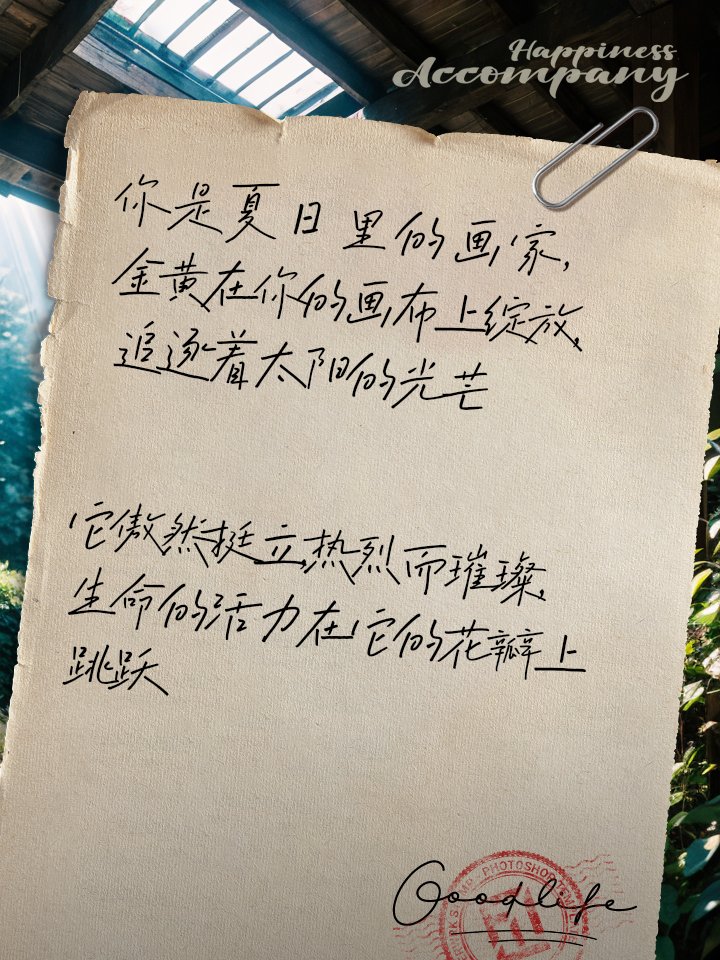 Happiness
Accompany
你是夏日里的画家,
金黄在你的画布上绽放,
追逐着太阳的光芒
它傲然挺立,热烈而璀璨,
生命的活力在它的花瓣上
跳跃
Goodlife
PHOTOSHOP